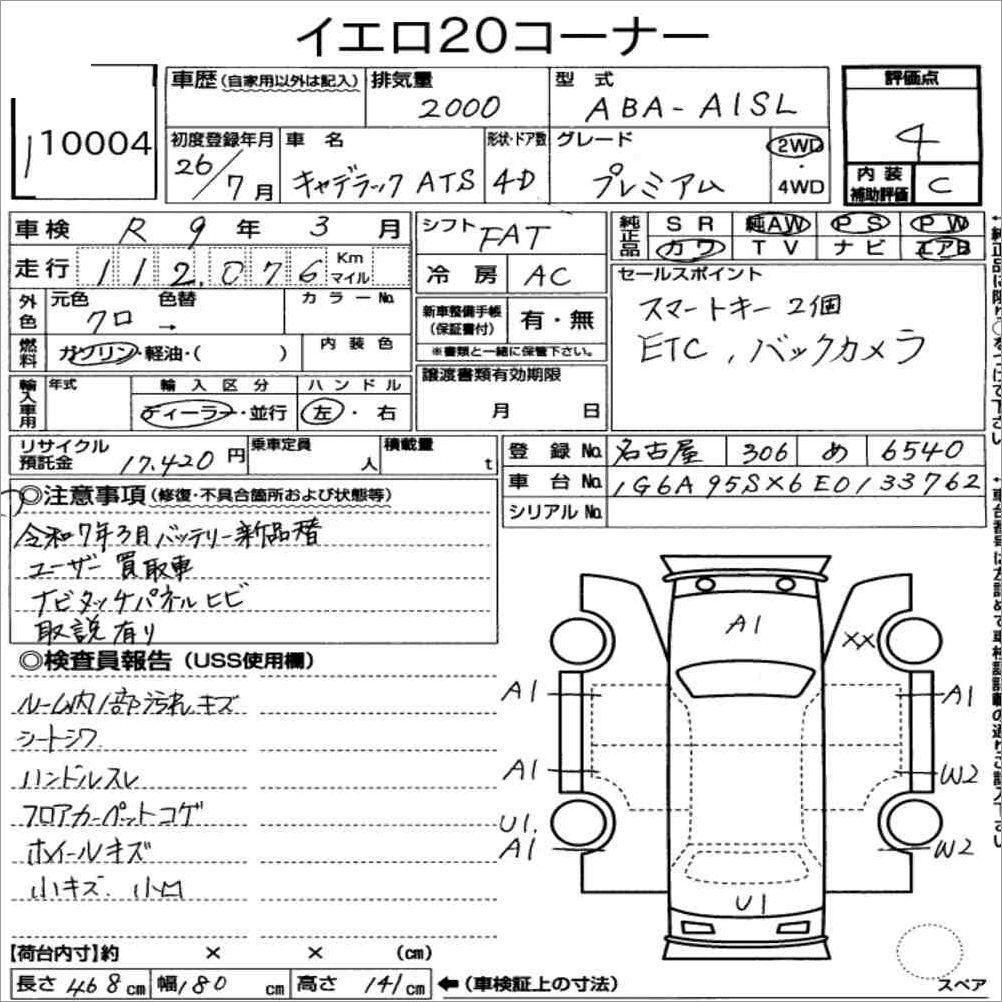 イエロ20コーナー
10004
車歴(自家用以外は記入)
排気量
2000
型式
ABA-A1SL
評価点
4
内装補助評価
C
初度登録年月
26/7月
車名
キャデラック ATS
形状・ドア数
4-D
グレード
プレミアム
2WD・4WD
車検 R 9年 3月
走行 112,076 Km マイル
シフト FAT
冷房 AC
純正品
SR 純AW PS PW
カワ TV ナビ エアB
セールスポイント
スマートキー2個
ETC, バックカメラ
外色
元色 色替
クロ →
カラーNo.
燃料 ガソリン・軽油・( )
内装色
新車整備手帳(保証書付) 有・無
※書類と一緒に保管下さい。
輸入車用
年式
輸入区分
ディーラー・並行
ハンドル
左・右
譲渡書類有効期限
月 日
リサイクル預託金 17,420円
乗車定員 人
積載量 t
登録No. 名古屋 306 め 6540
車台No. 1G6A95SX6E0133762
シリアルNo.
◎注意事項(修復・不具合箇所および状態等)
令和7年3月バッテリー新品替
ユーザー買取車
ナビタッチパネルヒビ
取説有り
◎検査員報告(USS使用欄)
ルーム内1部汚れキズ
シートシワ
ハンドルスレ
フロアカーペットコゲ
ホイールキズ
小キズ、小凹
A1
XX
A1
A1
A1
W2
U1.
A1
W2
U1
スペア
【荷台内寸】約 × × (cm)
長さ 468cm 幅 180cm 高さ 141cm ←(車検証上の寸法)